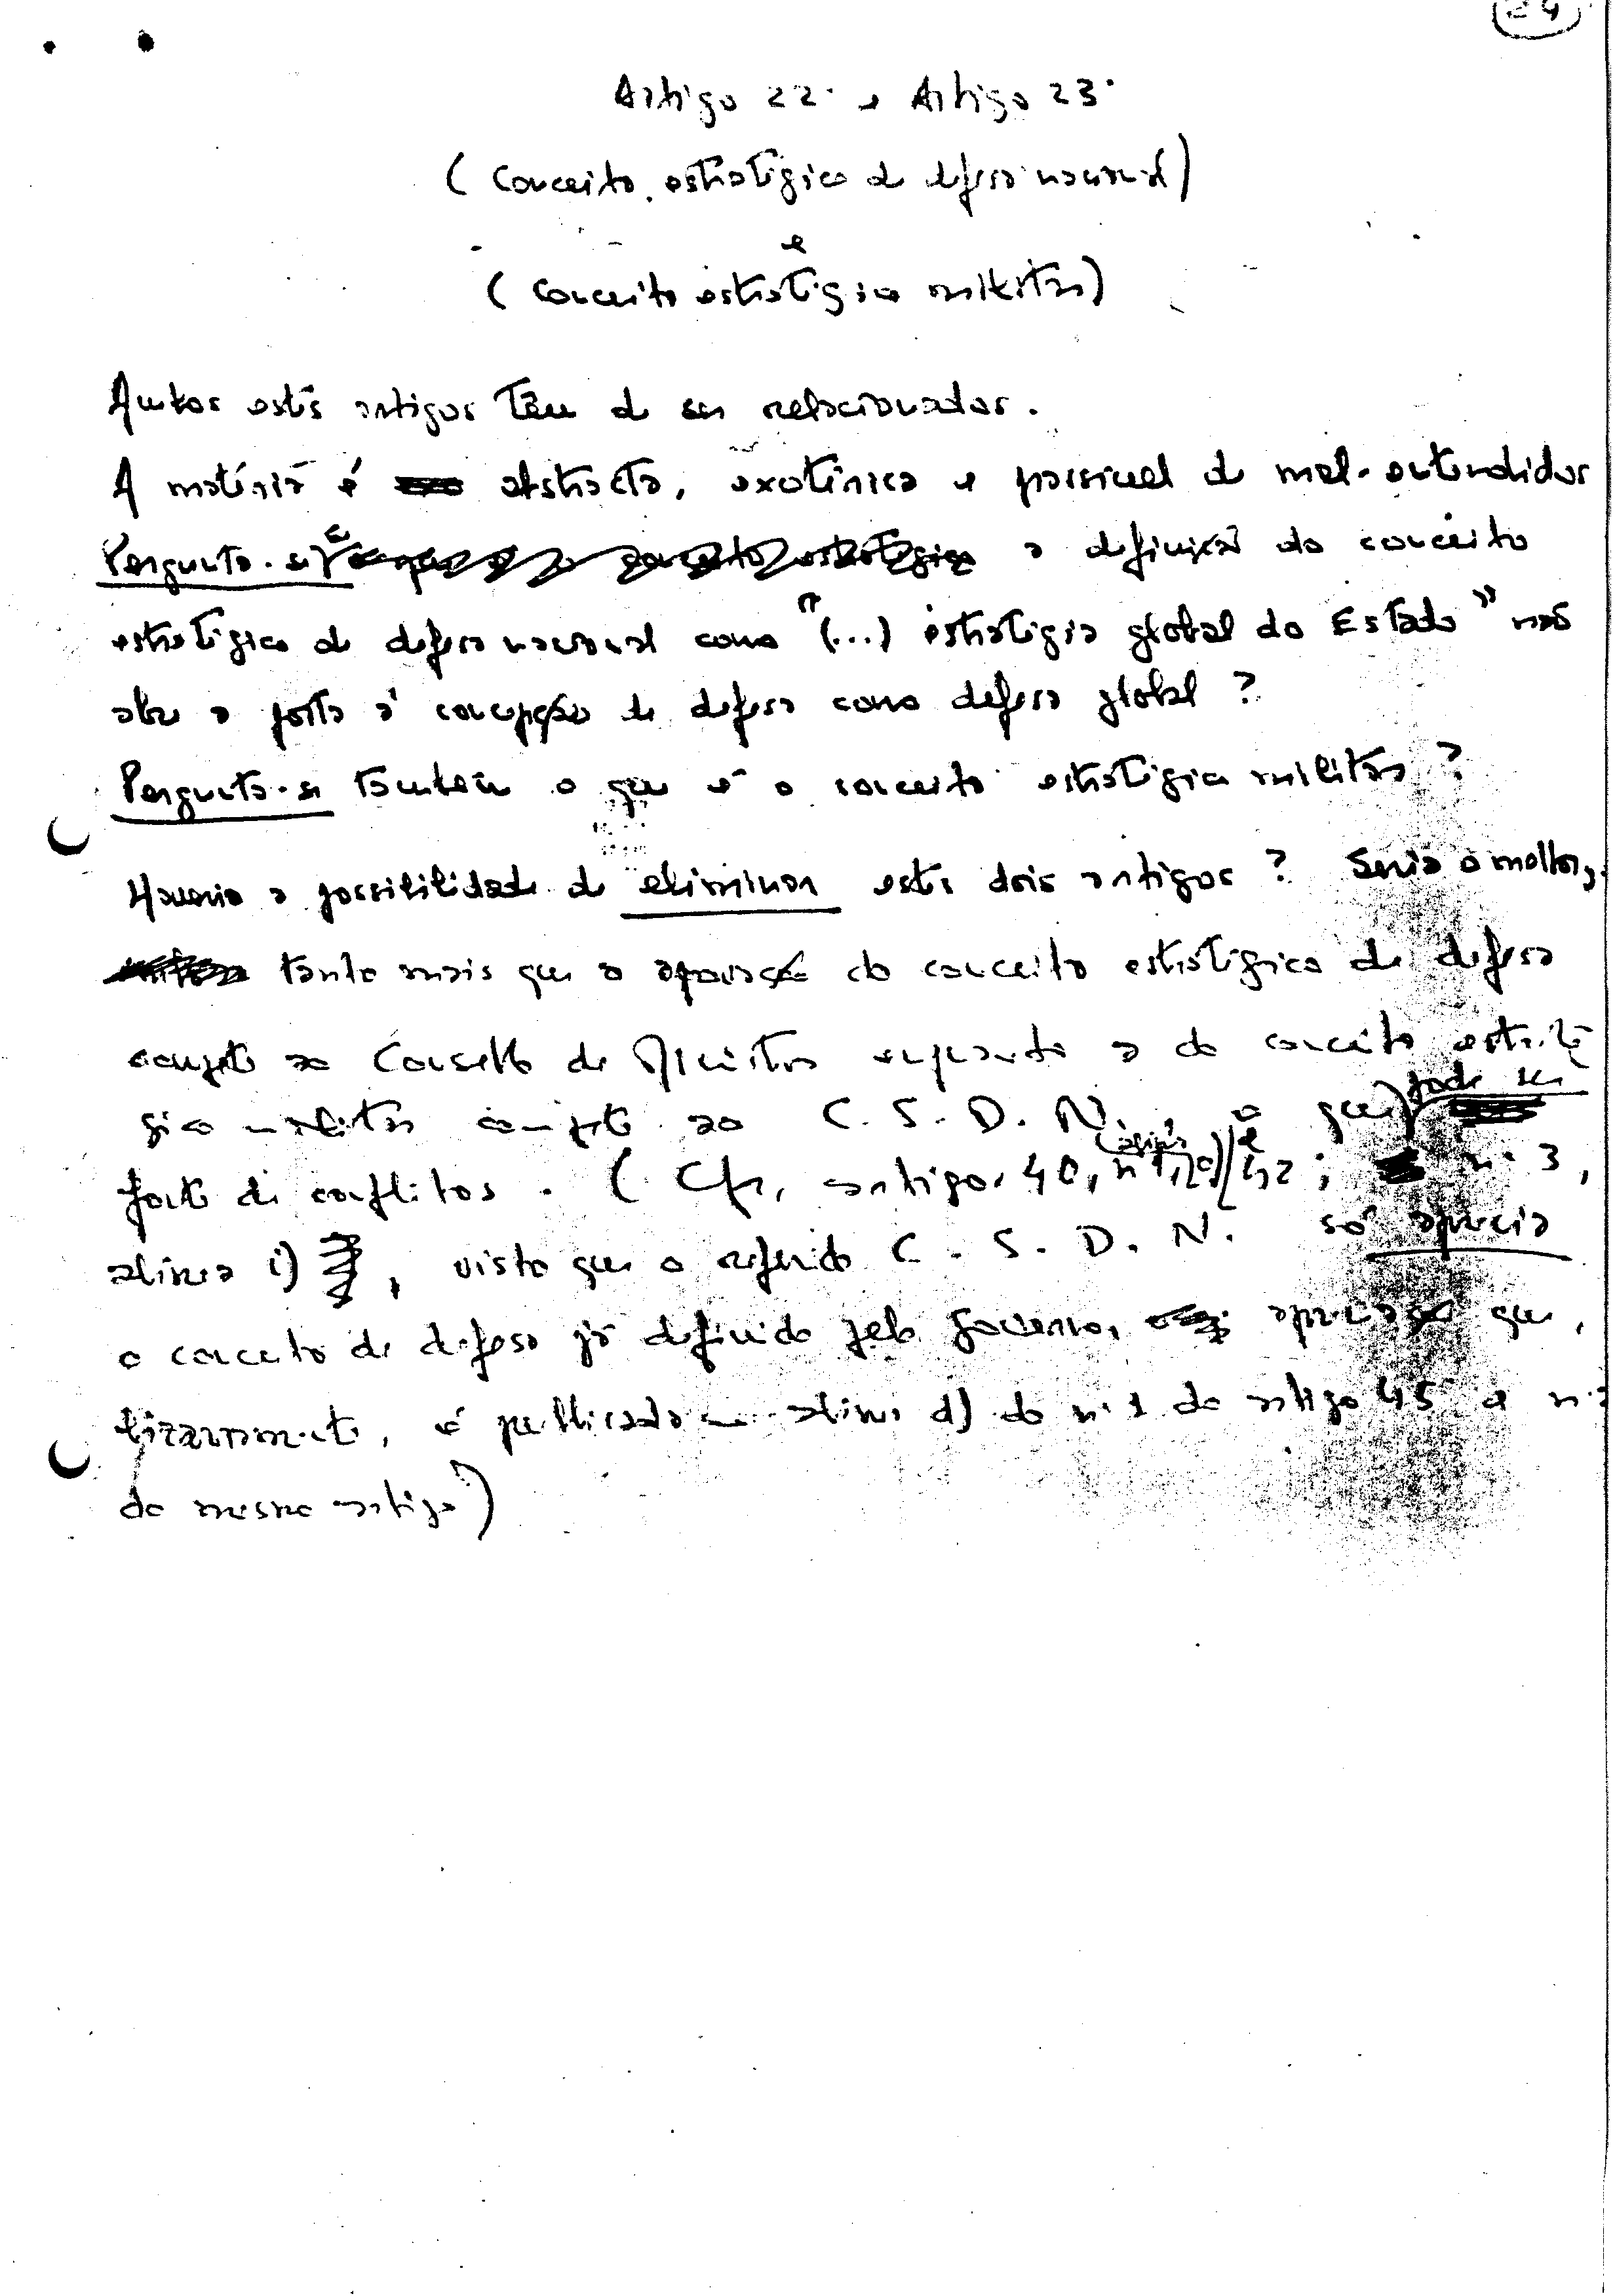 24
Artigo 22º e Artigo 23º
(Conceito estratégico de defesa nacional)
e
(Conceito estratégico militar)
Ambos estes artigos têm de ser relacionados.
A matéria é abstracta, exotérica e passível de mal-entendidos
Pergunta-se: a definição do conceito
estratégico de defesa nacional como "(...) estratégia global do Estado" não
abre a porta à concepção de defesa como defesa global?
Pergunta-se também o que é o conceito estratégico militar?
Haveria a possibilidade de eliminar estes dois artigos? Seria o melhor,
tanto mais que a do conceito estratégico de defesa
compete ao Conselho de Ministros enquanto a do conceito estraté
gico militar compete ao C.S.D.N., o que pode ser
fonte de conflitos. (Cfr. artigos 40, nº 3,
alínea i), visto que o referido C.S.D.N. só aprecia
o conceito de defesa já definido pelo Governo, que,
é publicado alínea d) do nº 1 do artigo 45
do mesmo artigo)